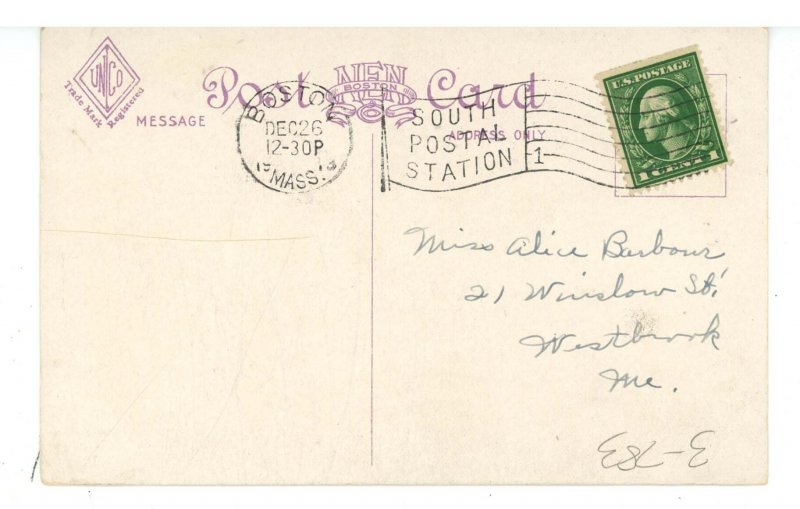 UNCO
Trade Mark Registered
Post Card
NEN
BOSTON
MESSAGE
ADDRESS ONLY
BOSTON
DEC 26
12-30P
MASS.
SOUTH
POSTAL
STATION
1
U.S. POSTAGE
1 CENT 1
Miss Alice Barbour
21 Winslow St.
Westbrook
Me.